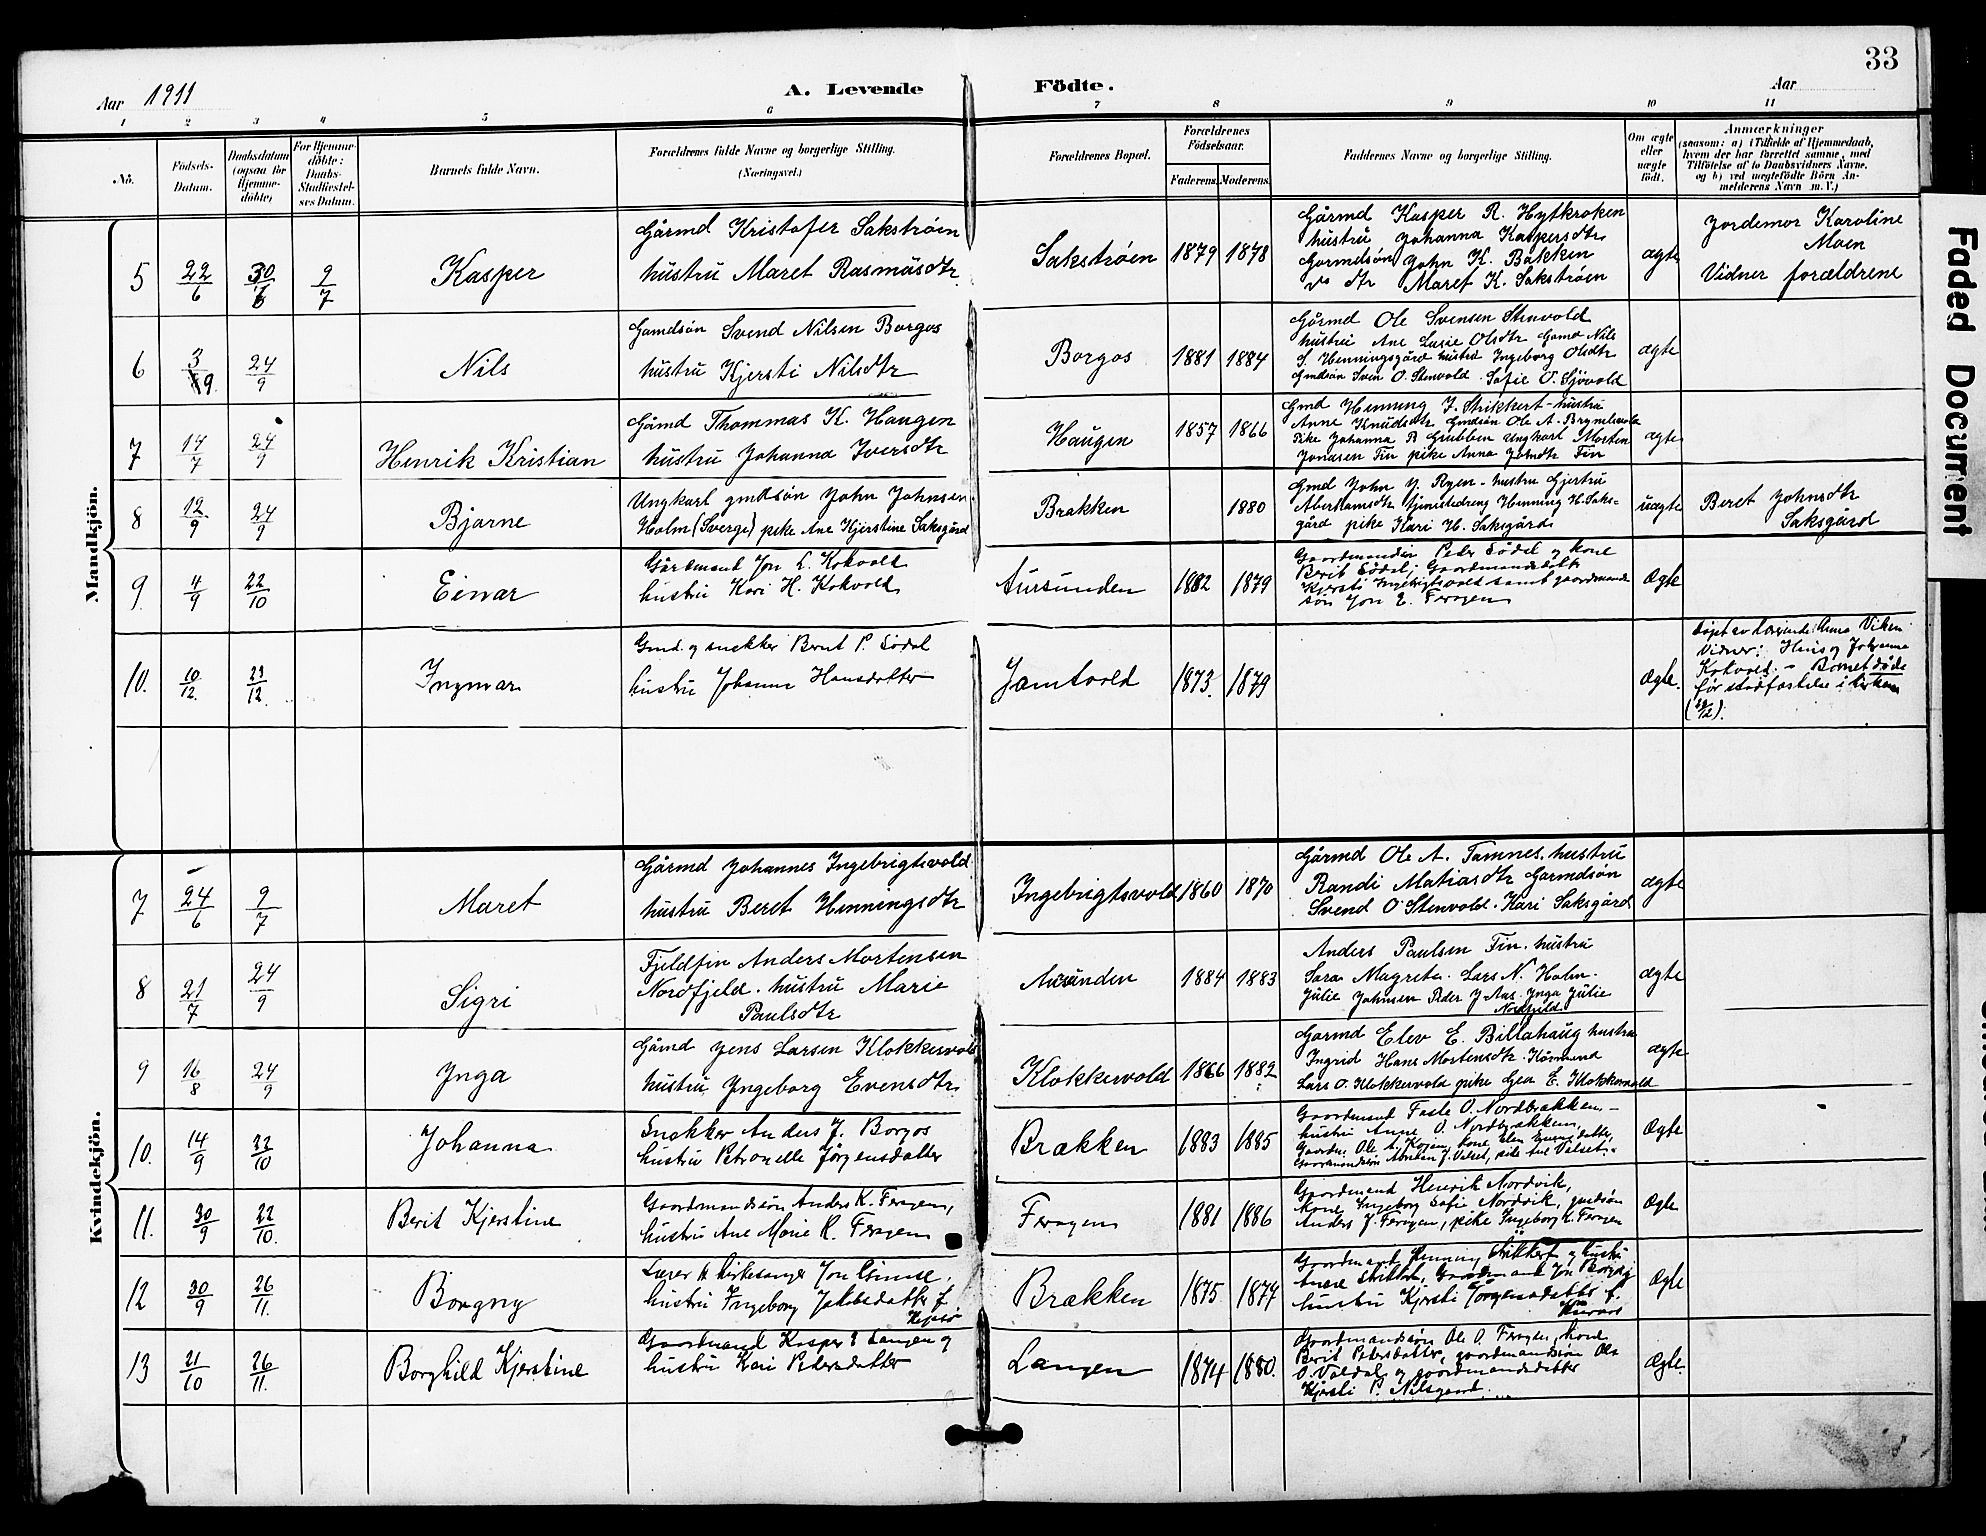 33
Aar 1911
A. Levende Födte.
Aar
1 2 3 4 5 6 7 8 9 10 11
No.
Födsels-Datum.
Daabsdatum (ogsaa for Hjemme-döbte)
For Hjemme-döbte: Daabs-Stadfæstel-ses Datum.
Barnets fulde Navn.
Forældrenes fulde Navne og borgerlige Stilling.
(Næringsvei.)
Forældrenes Bopæl.
Forældrenes Födselsaar.
Faderens. Moderens.
Faddernes Navne og borgerlige Stilling.
Om ægte eller uægte födt.
Anmærkninger
(saasom: a) i Tilfælde af Hjemmedaab, hvem der har forrettet samme, med Tilföielse af to Daabsvidners Navne, og b) ved uægtefödte Börn An-melderens Navn m. V.)
Mandkjön.
5 22/6 30/6 9/7 Kasper
Gårmd Kristofer Sakstrøen
hustru Maret Rasmusdtr
Sakstrøen 1879 1878
Gårmd Kasper R. Hytkroken
hustru Johanna Kaspersdtr
Garmdsøn John K. Bakken
Maret K. Sakstrøen
ægte
Jordemor Karoline
Moen
Vidner forældrene
6 3/9 24/9 Nils
Gamdsøn Svend Nilsen Borgos
hustru Kjersti Nilsdtr
Borgos 1881 1884
Gårmd Ole Svensen Stenvold
hustru Ane Lusie Olsdtr Gamd Nils
S. Henningsgård hustru Ingeborg Olsdtr
Gmdsøn Sven O. Stenvold. Sofie O. Sjövold
ægte
7 14/7 24/9 Henrik Kristian
Gåmd Thommas K. Haugen
hustru Johanna Iversdtr
Haugen 1857 1866
Gmd Henning J. Strikkert - hustru
Anne Knudsdtr Gmdsön Ole A.
Pike Johanna B Grubben ungkarl Morten
Jonasen Fin pike Anna Fin
ægte
8 12/9 24/9 Bjarne
Ungkarl gmdsøn John Johnsen
Holm (Sverge) pike Ane Kjerstine Saksgård
Brækken 1880
Gmd John J. Ryen - hustru Gjertru
Henning H. Saks-
gård pike Kari H. Saksgård
uægte
Beret Johnsdtr
Saksgård
9. 4/9 22/10 Einar
Gårdmand Jon L. Kokvold
hustru Kari H. Kokvold
Aursunden 1882 1879
Gaardmanden Peder Södal og kone
Berit Södal; Gaardmandsdatter
Kjersti Ingebrigtsvold samt gaardmands
søn Jon E. Feragen
Ægte
10. 10/12. 23/12. Ingvar
Gmd. og snekker Bernt P. Södal
hustru Johanne Hansdatter
Jamtvold 1873. 1879
Ægte.
Döpt av Anna Viken
Vidner: Johanna
Kokvold. - Barnet döde
før stadfæstelse i kirken
Kvindekjön.
7 24/6 9/7 Maret
Gårmd Johannes Ingebrigtsvold
hustru Beret Henningsdtr
Ingebrigtsvold 1860 1870
Gårmd Ole A. Tamnes, hustru
Randi Matiasdtr Garmdsøn
Svend O Stenvold. Kari Saksgård
ægte
8 21/7 24/9 Sigri
Fjeldfin Anders Mortensen
Nordfjeld. hustru Marie
Paulsdtr
Aursunden 1884 1883
Anders Paulsen Fin. hustru
Sara Magreta. Lars N. Holm.
Julie Johnsen Peder J Aas. Inga Julie
Nordfjeld
ægte
9 16/8 24/9 Ynga
Gåmd Jens Larsen Klokkervold
hustru Yngeborg Evensdtr.
Klokkervold 1866 1882
Garmd Elev E. Billahaug hustru
Ingrid Hans Mortensdtr.
Lars O. Klokkervold pike Gea E. Klokkervold
ægte
10. 14/9 22/10 Johanna
Snekker Anders J. Borgos
hustru Petronelle Jörgensdatter
Brækken 1883 1885
Gaardmand Faste O. Nordbrækken, -
hustru Anne O. Nordbrækken,
Gaardm. Ole A. Kojen, kone Elen datter,
Gaardmandssøn Abraham J. Valset, pike Ane Valset. -
Ægte
11. 30/9 22/10. Berit Kjerstine
Gaardmandssön Anders K. Feragen,
hustru Ane Marie R. Feragen
Feragen 1881 1886
Gaardmand Henrik Nordvik,
Kone Ingeborg Sofie Nordvik, gmdsön
Anders J. Feragen, pike Ingeborg K. Feragen
Ægte
12 30/9 26/11. Borgny
Lærer & kirkesanger Jon
hustru Ingeborg Jakobsdatter f.
Brækken 1875 1877
Gaardmand Henning Strikkert og hustru
Anne Strikkert, Gaardmand Jon Borgos
hustru Kjersti Jörgensdatter f.
Ægte
13 21/10 26/11. Borghild Kjerstine
Gaardmand Kasper E Langen og
hustru Kari Pedersdatter
Langen 1874 1880.
Gaardmandssön Ole O. Feragen, kone
Berit Pedersdatter, gaardmandssön Ole
O. Valdal og gaardmandsdatter
Kjersti P. Nilsgaard.
Ægte.
Faded Document